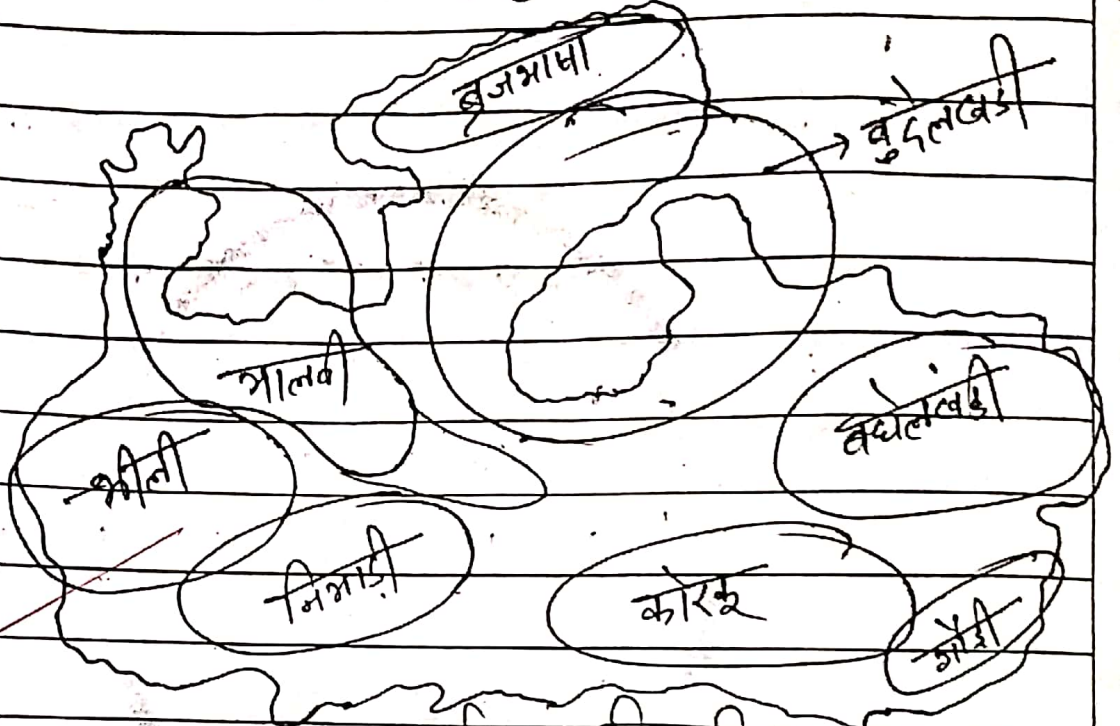 ब्रजभाषा
बुंदेलखंडी
मालवी
बघेलखंडी
भीली
निमाड़ी
कोरकू
गोंडी